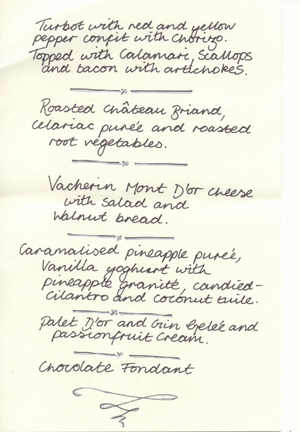 Turbot with red and yellow
pepper confit with Chorizo.
Topped with Calamari, Scallops
and bacon with artichokes.
Roasted Château Briand,
Celariac pureé and roasted
root vegetables.
Vacherin Mont D'or cheese
with salad and
walnut bread.
Caramalised pineapple pureé,
Vanilla yoghurt with
pineapple granité, candied-
cilantro and coconut tuile.
Palet D'or and Gin Geleé and
passionfruit cream.
Chocolate Fondant